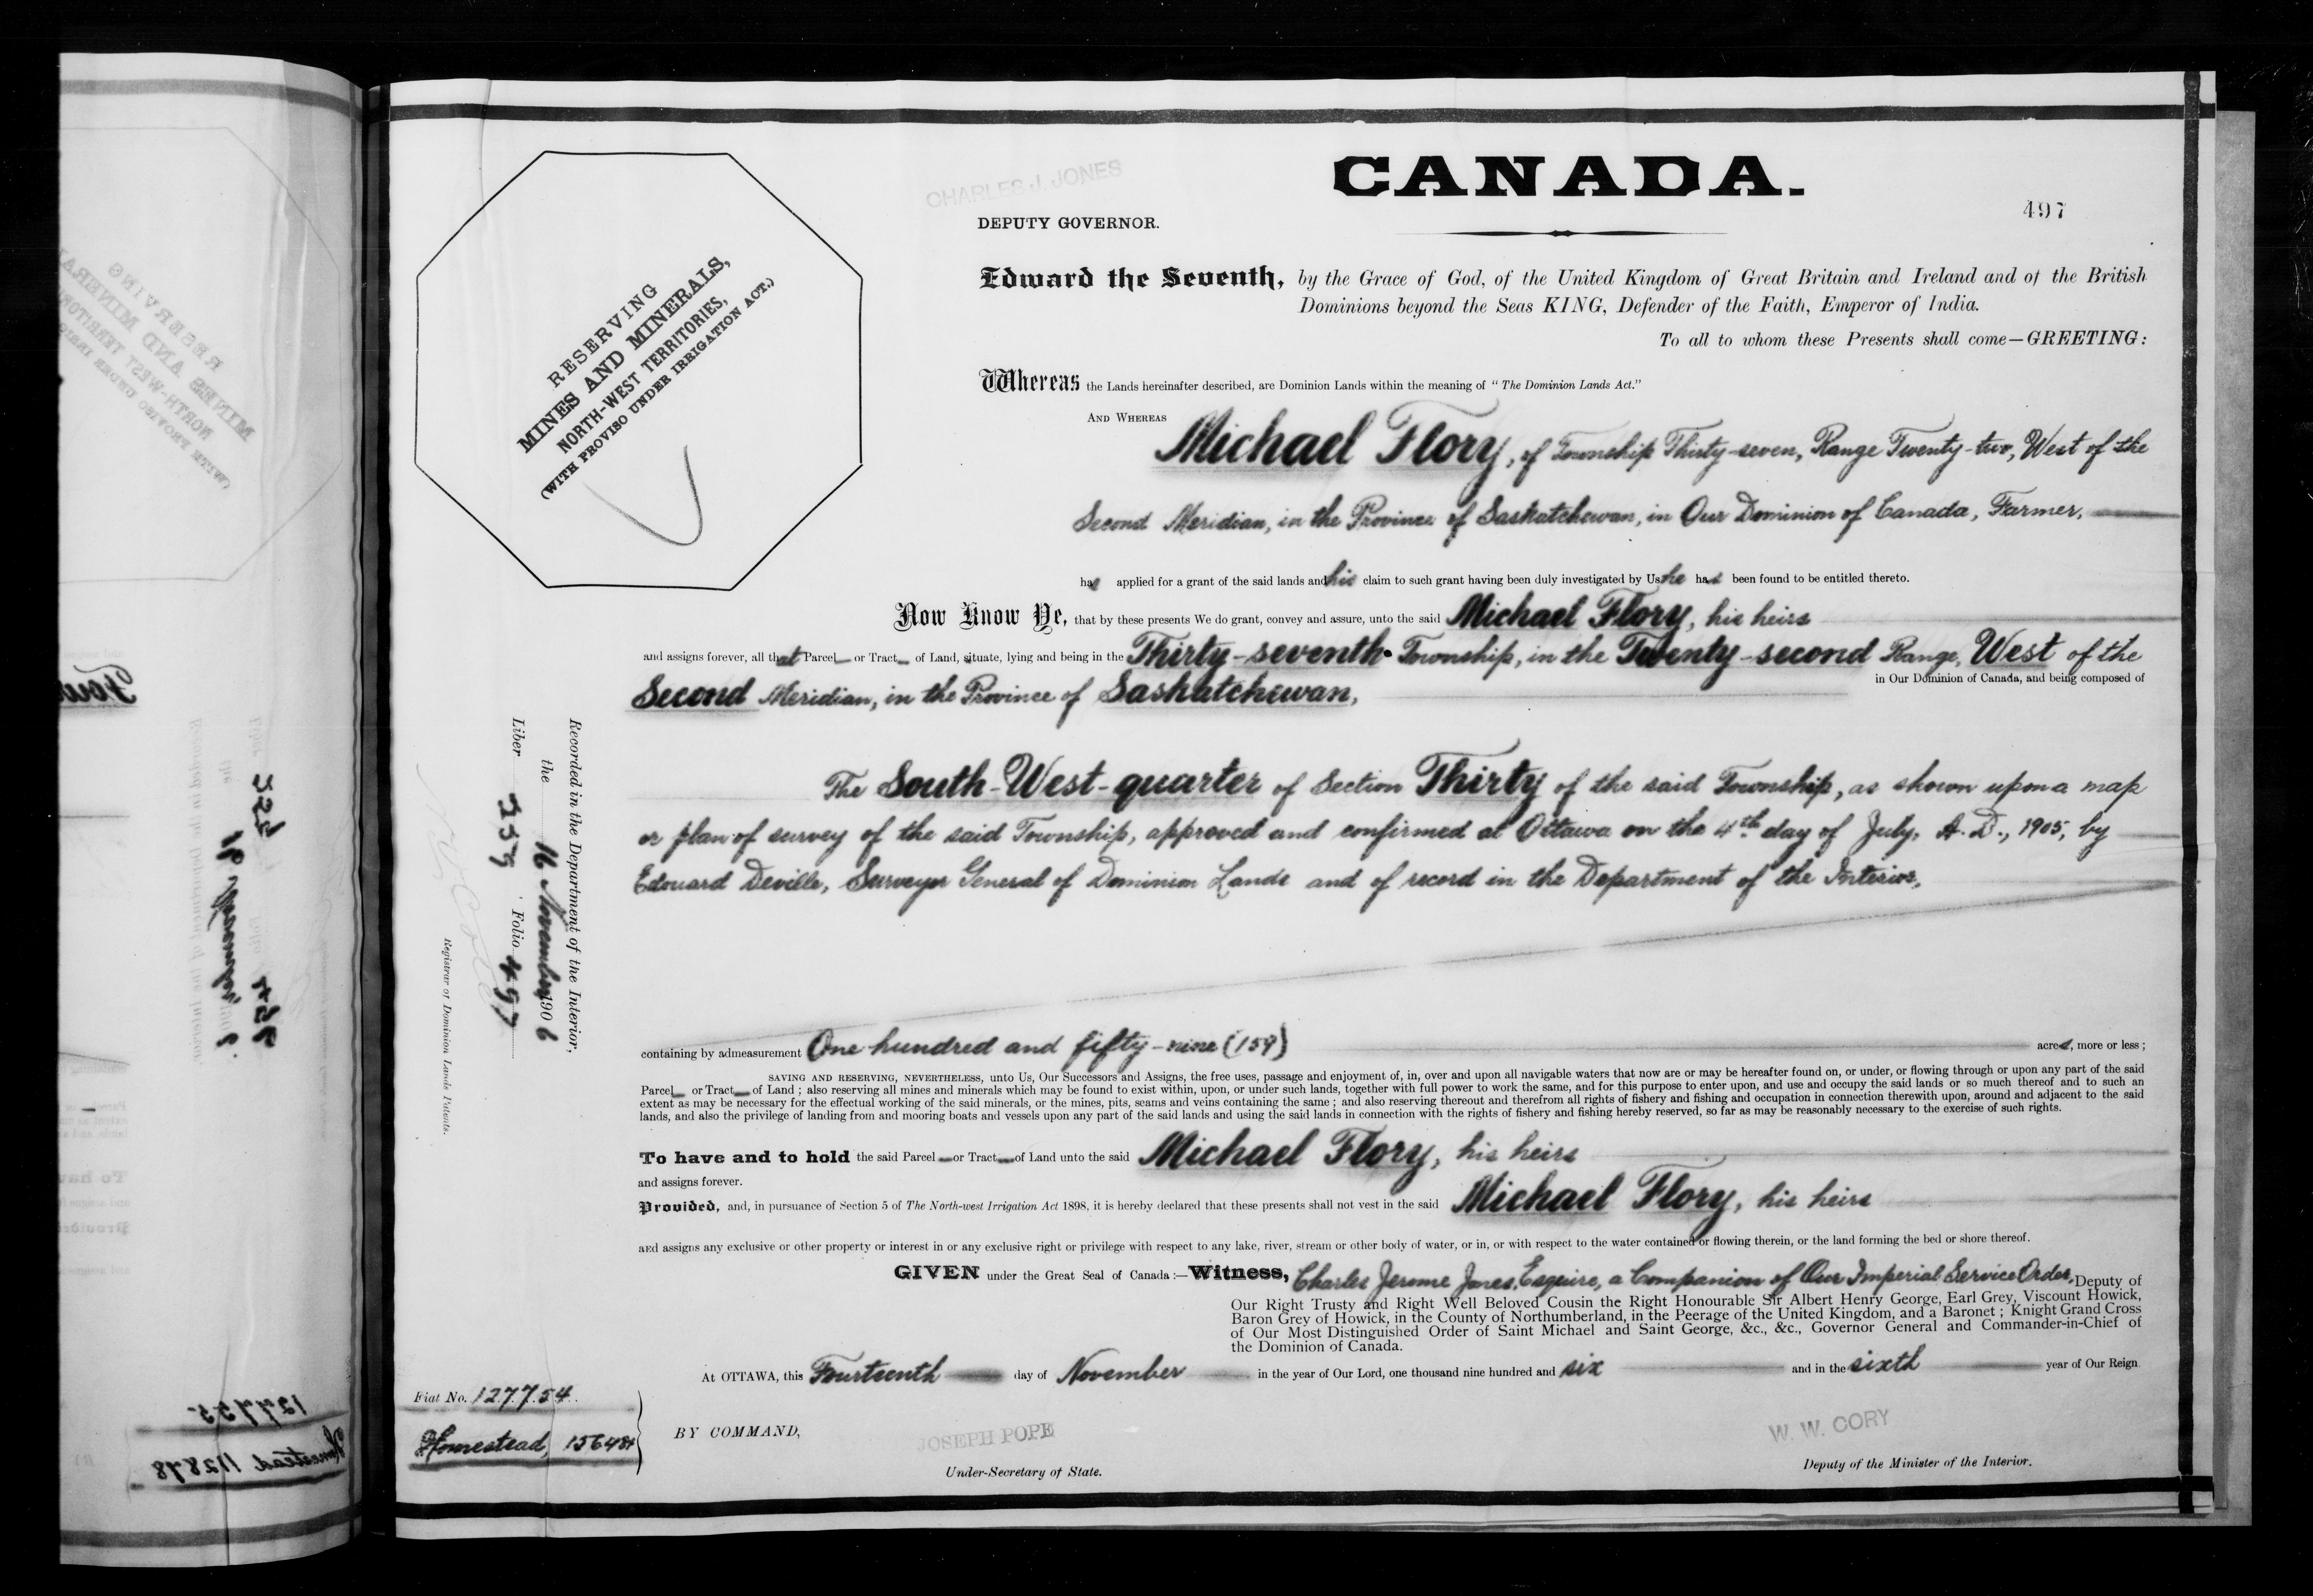 CHARLES J. JONES
CANADA.
DEPUTY GOVERNOR.
497
RESERVING
MINES AND MINERALS,
NORTH-WEST TERRITORIES,
(WITH PROVISO UNDER IRRIGATION ACT.)
Edward the Seventh, by the Grace of God, of the United Kingdom of Great Britain and Ireland and of the British
Dominions beyond the Seas KING, Defender of the Faith, Emperor of India.
To all to whom these Presents shall come—GREETING:
Whereas the Lands hereinafter described, are Dominion Lands within the meaning of "The Dominion Lands Act."
AND WHEREAS
Michael Flory, of Township Thirty-seven, Range Twenty-two, West of the
Second Meridian, in the Province of Saskatchewan, in Our Dominion of Canada, Farmer,
has applied for a grant of the said lands and his claim to such grant having been duly investigated by Us he has been found to be entitled thereto.
Now Know Ye, that by these presents We do grant, convey and assure, unto the said Michael Flory, his heirs
and assigns forever, all that Parcel or Tract of Land, situate, lying and being in the Thirty-seventh Township, in the Twenty-second Range, West of the
Second Meridian, in the Province of Saskatchewan,
in Our Dominion of Canada, and being composed of
The South-West-quarter of Section Thirty of the said Township, as shown upon a map
or plan of survey of the said Township, approved and confirmed at Ottawa on the 4th day of July, A.D., 1905, by
Edouard Deville, Surveyor General of Dominion Lands and of record in the Department of the Interior,
Recorded in the Department of the Interior,
the 16 November 1906
Liber 357 Folio 497
Registrar of Dominion Lands Patents.
containing by admeasurement One hundred and fifty-nine (159) acres, more or less;
SAVING AND RESERVING, NEVERTHELESS, unto Us, Our Successors and Assigns, the free uses, passage and enjoyment of, in, over and upon all navigable waters that now are or may be hereafter found on, or under, or flowing through or upon any part of the said
Parcel or Tract of Land; also reserving all mines and minerals which may be found to exist within, upon, or under such lands, together with full power to work the same, and for this purpose to enter upon, and use and occupy the said lands or so much thereof and to such an
extent as may be necessary for the effectual working of the said minerals, or the mines, pits, seams and veins containing the same; and also reserving thereout and therefrom all rights of fishery and fishing and occupation in connection therewith upon, around and adjacent to the said
lands, and also the privilege of landing from and mooring boats and vessels upon any part of the said lands and using the said lands in connection with the rights of fishery and fishing hereby reserved, so far as may be reasonably necessary to the exercise of such rights.
To have and to hold the said Parcel or Tract of Land unto the said Michael Flory, his heirs
and assigns forever.
Provided, and, in pursuance of Section 5 of The North-west Irrigation Act 1898, it is hereby declared that these presents shall not vest in the said Michael Flory, his heirs
and assigns any exclusive or other property or interest in or any exclusive right or privilege with respect to any lake, river, stream or other body of water, or in, or with respect to the water contained or flowing therein, or the land forming the bed or shore thereof.
GIVEN under the Great Seal of Canada:—Witness, Charles Jerome Jones, Esquire, a Companion of Our Imperial Service Order, Deputy of
Our Right Trusty and Right Well Beloved Cousin the Right Honourable Sir Albert Henry George, Earl Grey, Viscount Howick,
Baron Grey of Howick, in the County of Northumberland, in the Peerage of the United Kingdom, and a Baronet; Knight Grand Cross
of Our Most Distinguished Order of Saint Michael and Saint George, &c., &c., Governor General and Commander-in-Chief of
the Dominion of Canada.
At OTTAWA, this Fourteenth day of November in the year of Our Lord, one thousand nine hundred and six and in the sixth year of Our Reign
Fiat No. 127754
Homestead, 156484
BY COMMAND,
JOSEPH POPE
Under-Secretary of State.
W. W. CORY
Deputy of the Minister of the Interior.